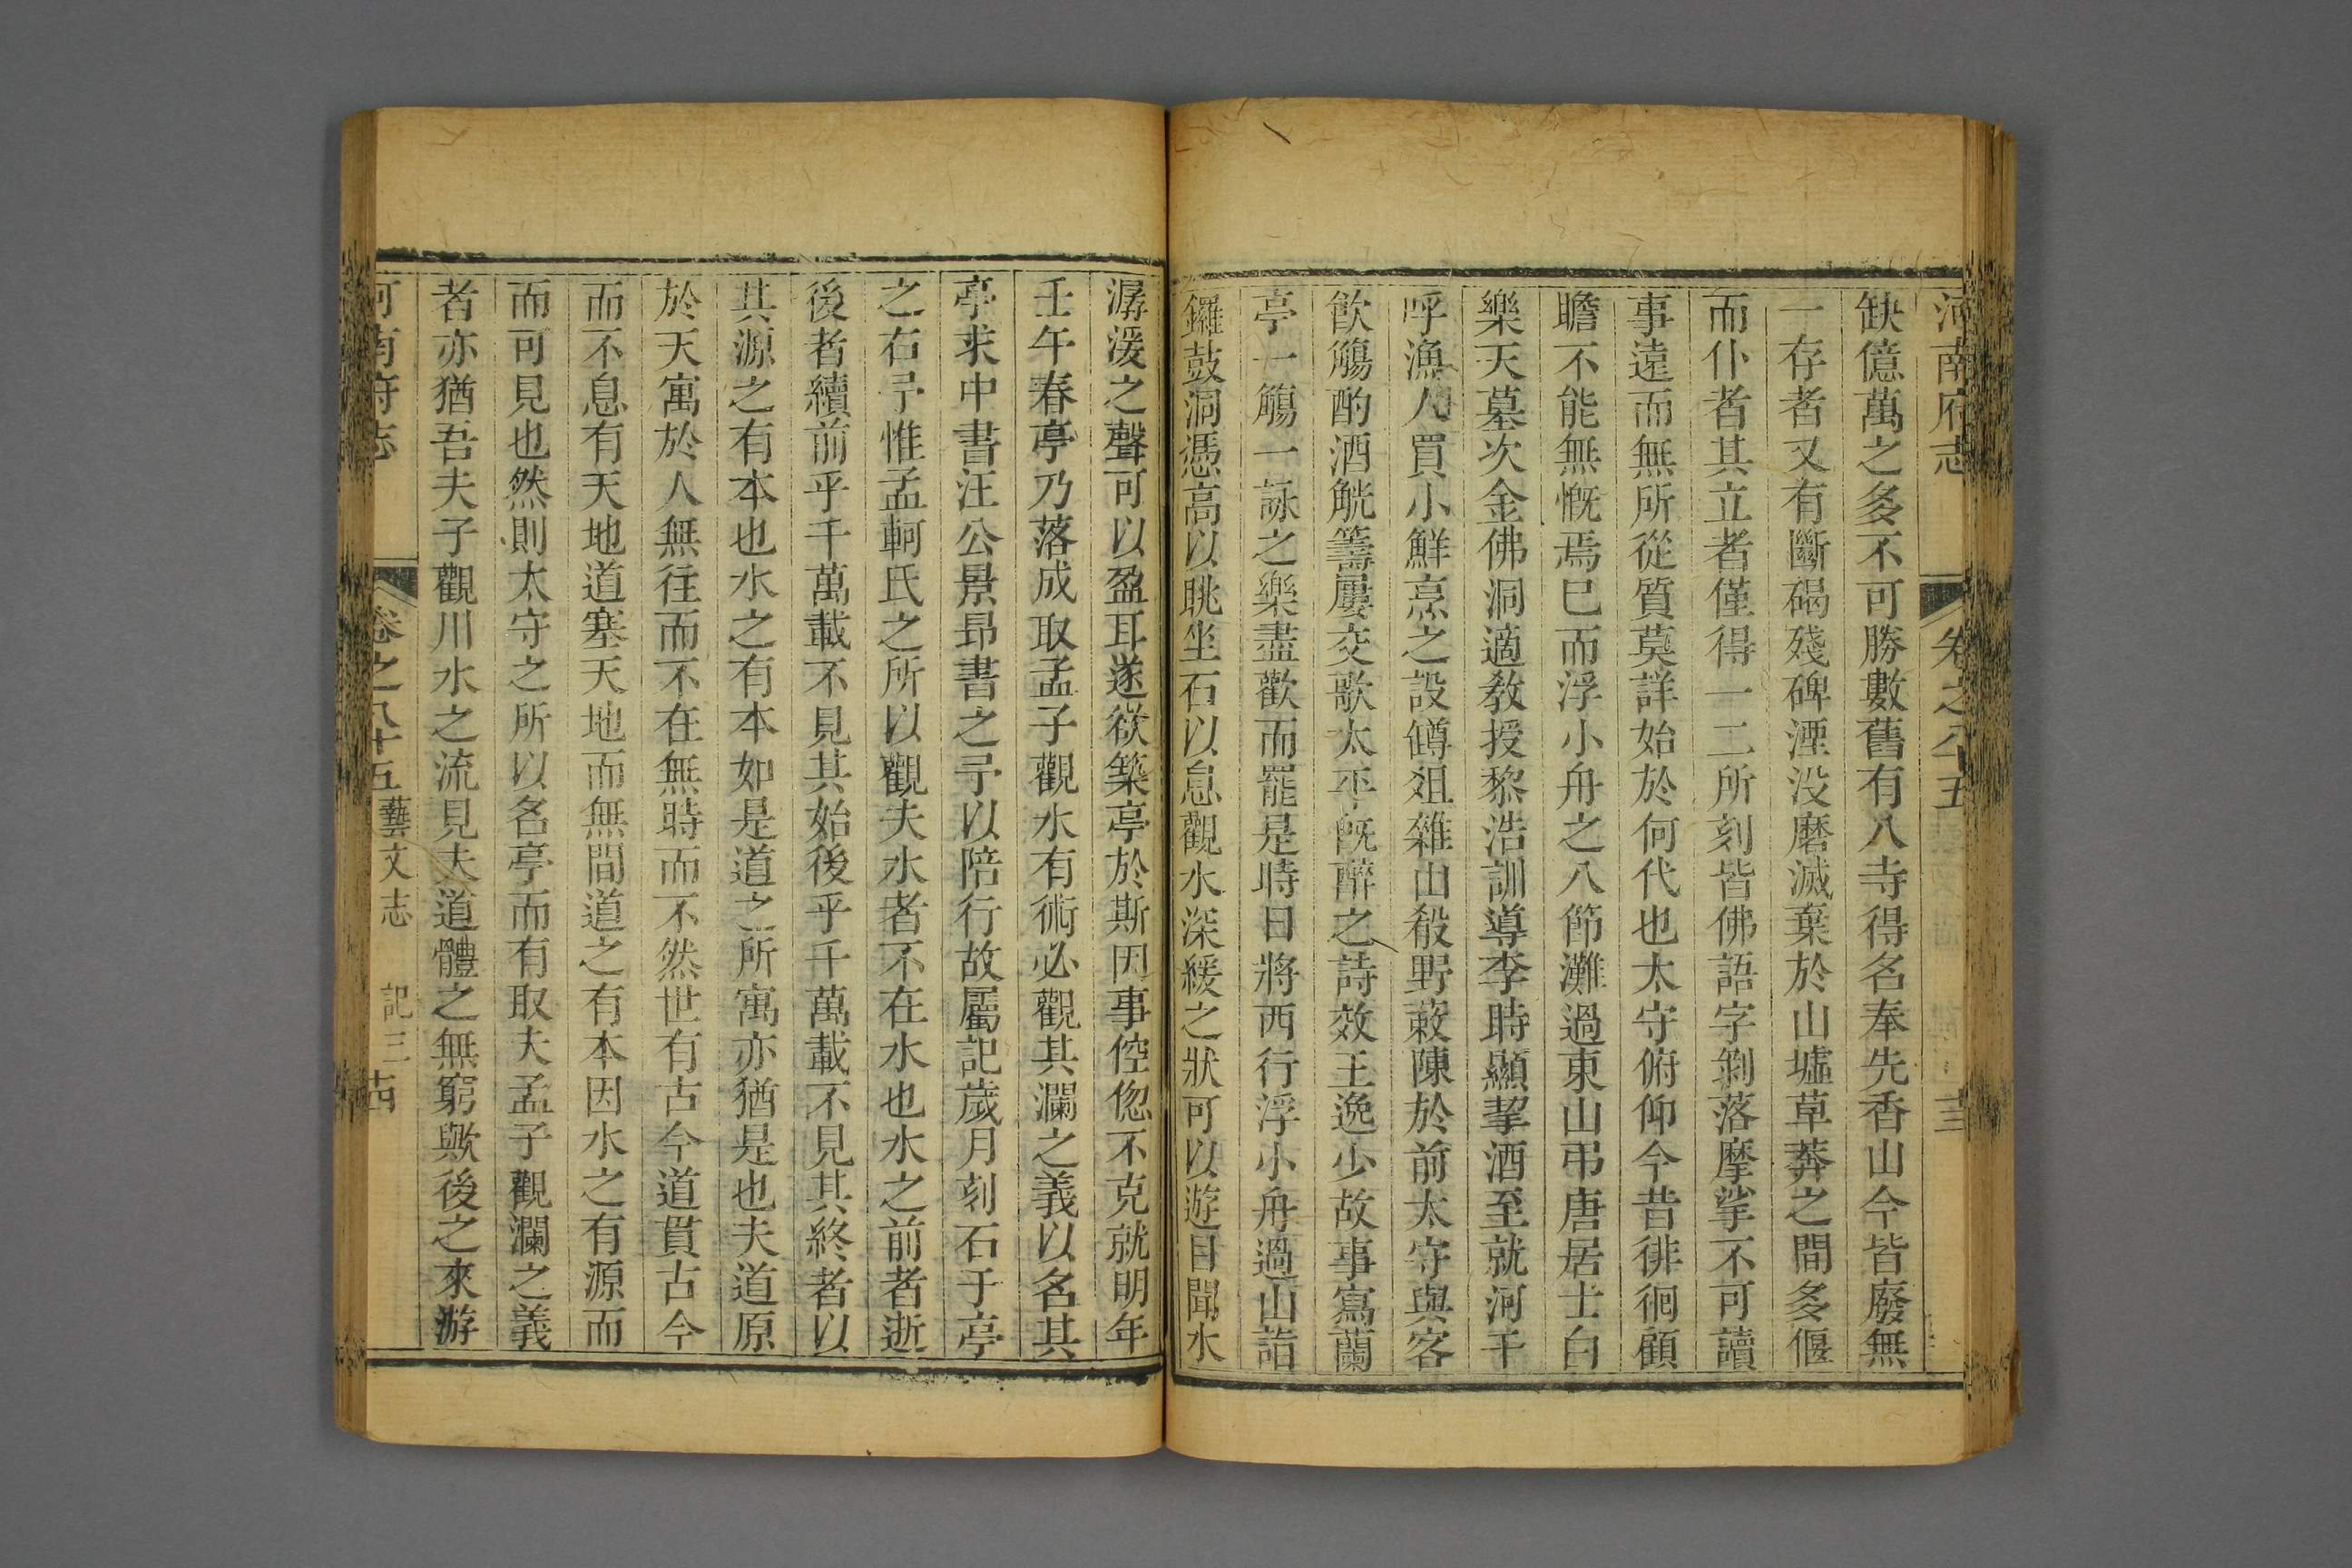 河南府志 卷之八十五
缺億萬之多不可勝數舊有八寺得名奉先香山今皆廢無
一存者又有斷碣殘碑湮没磨滅棄於山墟草莽之間多偃
而仆者其立者僅得一二所刻皆佛語字剝落摩挲不可讀
事遠而無所從質莫詳始於何代也太守俯仰今昔徘徊顧
瞻不能無慨焉巳而浮小舟之八節灘過東山弔唐居士白
樂天墓次金佛洞適教授黎浩訓導李時顯挈酒至就河干
呼漁人買小鮮烹之設罇俎雜山殽野蔌陳於前太守與客
飲觴酌酒觥籌屢交歌太平既醉之詩效王逸少故事寫蘭
亭一觴一詠之樂盡歡而罷是時日將西行浮小舟過山詣
鑼鼓洞憑高以眺坐石以息觀水深緩之狀可以遊目聞水
潺湲之聲可以盈耳遂欲築亭於斯因事倥偬不克就明年
壬午春亭乃落成取孟子觀水有術必觀其瀾之義以名其
亭求中書汪公景昻書之予以陪行故屬記歲月刻石于亭
之右予惟孟軻氏之所以觀夫水者不在水也水之前者逝
後者續前乎千萬載不見其始後乎千萬載不見其終者以
其源之有本也水之有本如是道之所寓亦猶是也夫道原
於天寓於人無往而不在無時而不然世有古今道貫古今
而不息有天地道塞天地而無間道之有本因水之有源而
而可見也然則太守之所以名亭而有取夫孟子觀瀾之義
者亦猶吾夫子觀川水之流見夫道體之無窮歟後之來游
河南府志 卷之八十五 藝文志 記三